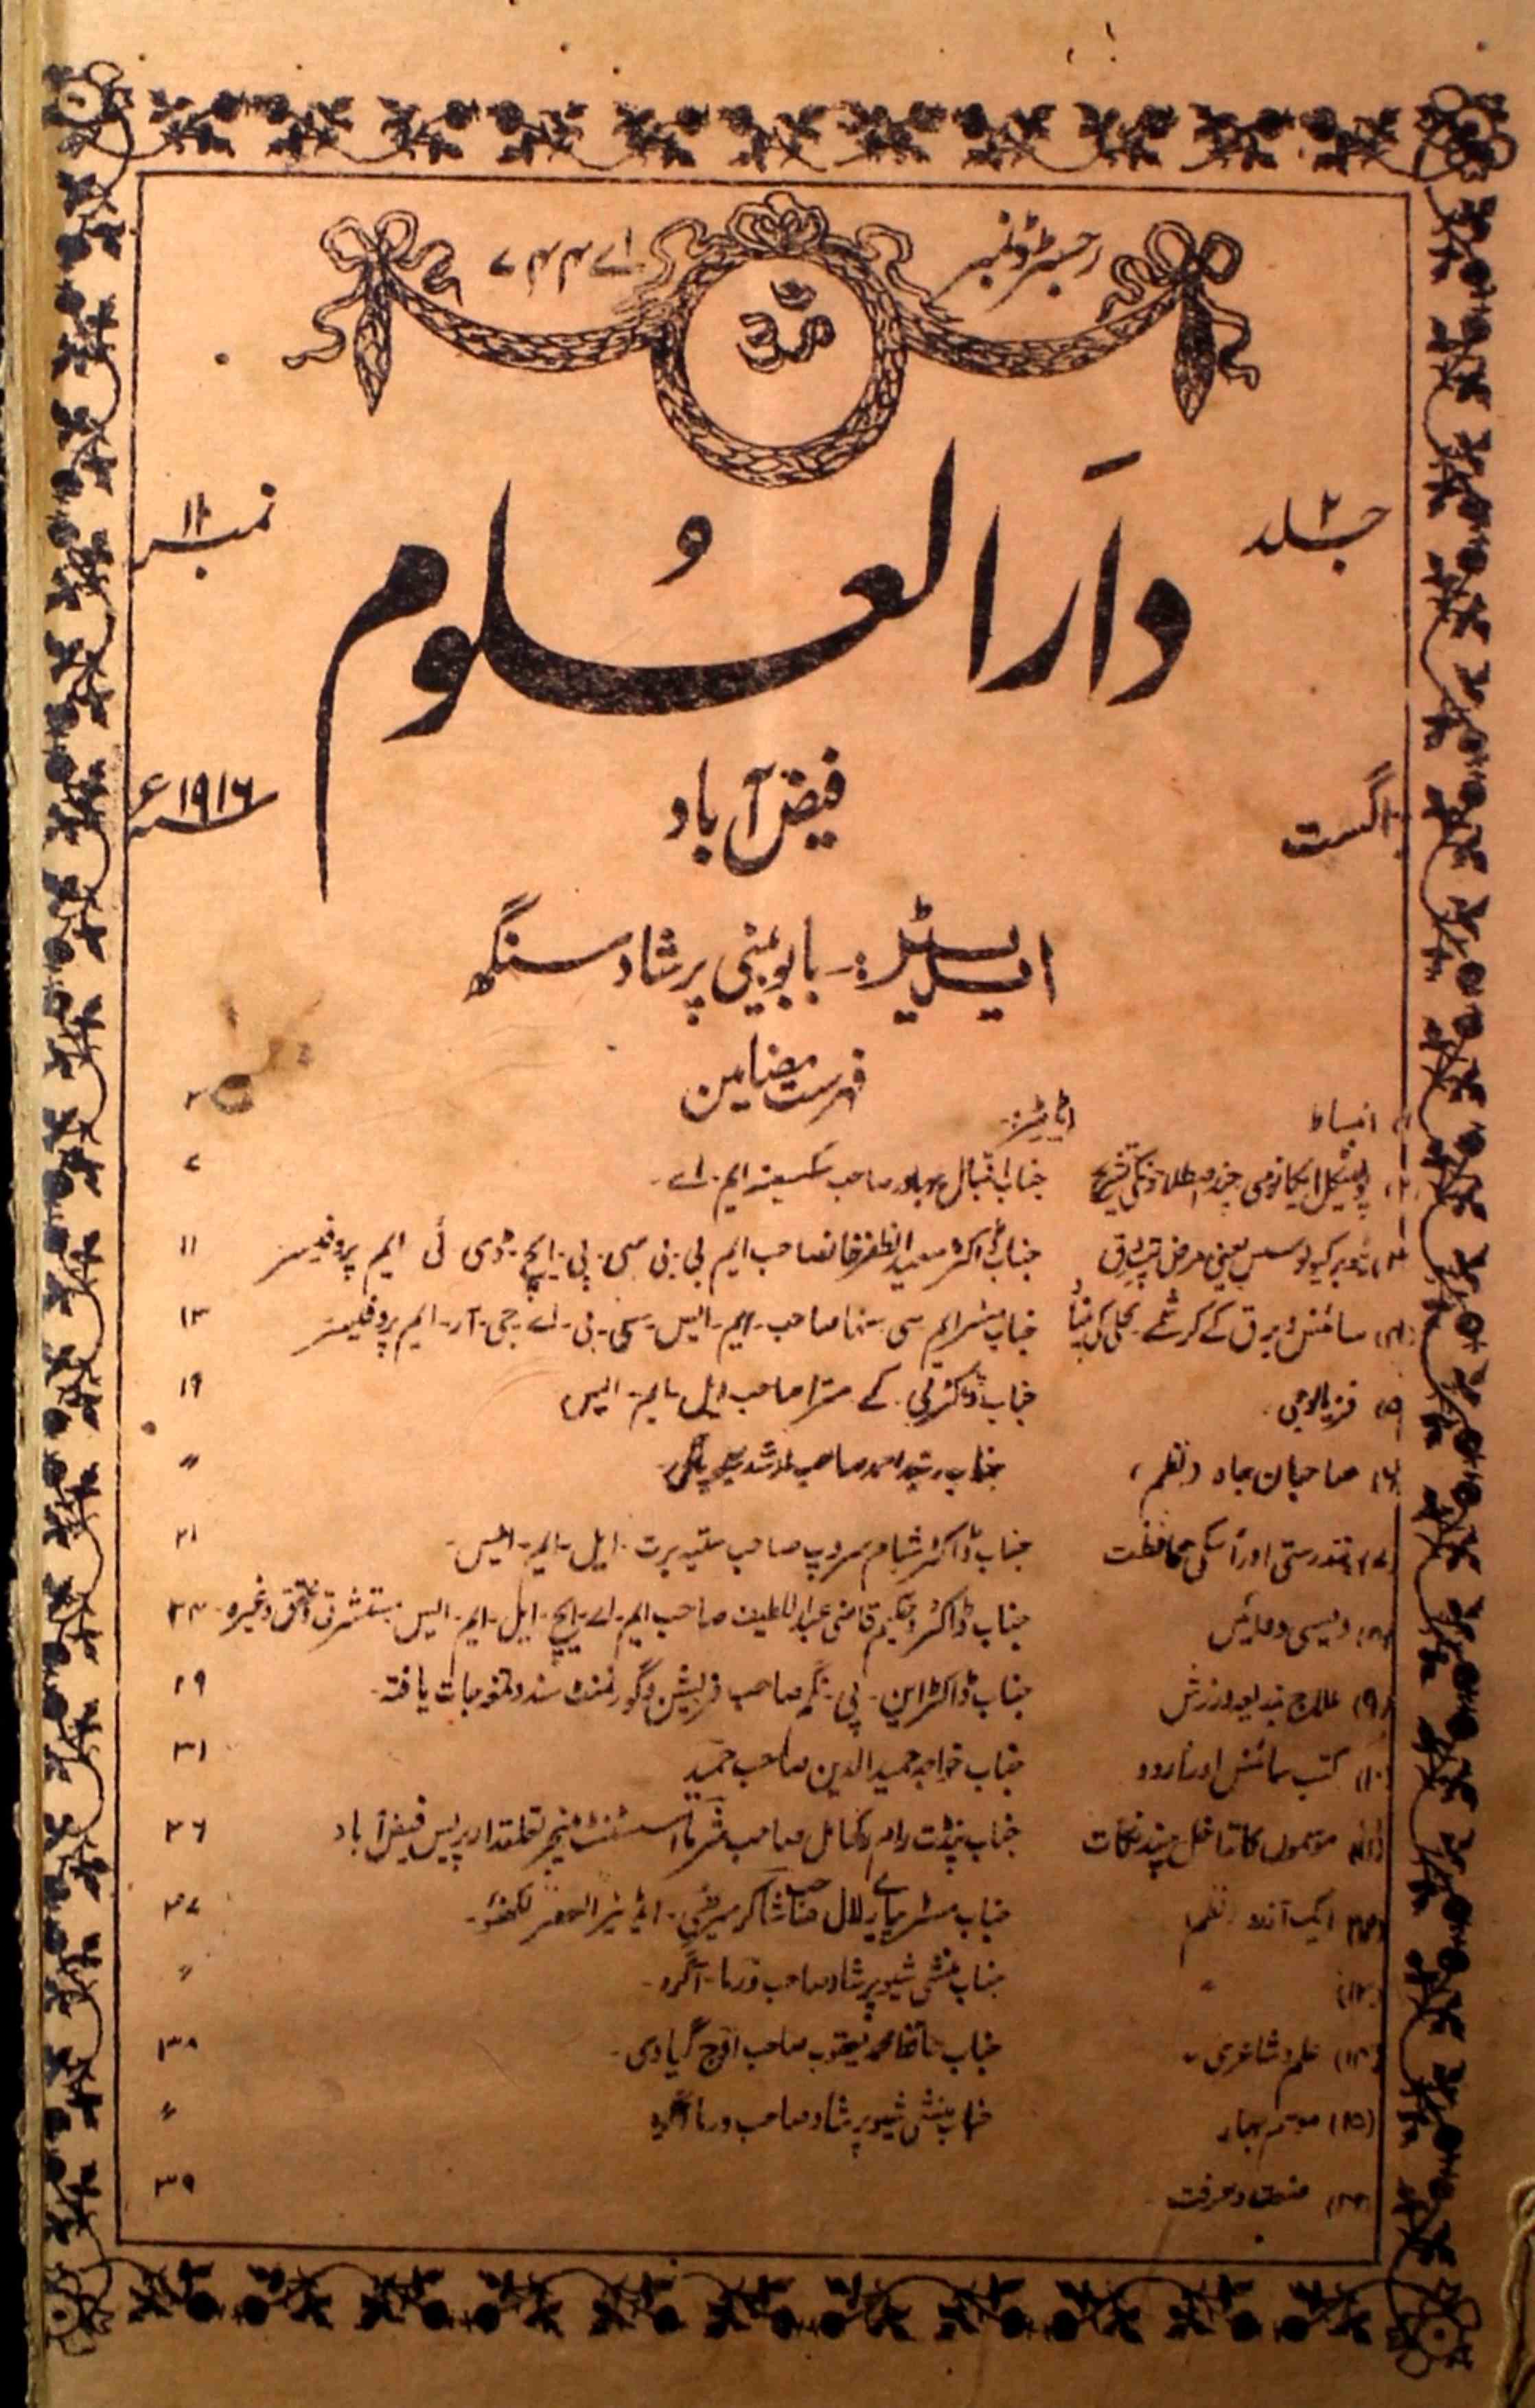 رجسٹرڈ نمبر اے ۷۴۴
ॐ
جلد ۲ نمبر ۱۱
دَارالعُلوم
فیض آباد
اگست ۱۹۱۶ء
ایڈیٹر:۔ بابو بینی پرشاد سنگھ
فہرست مضامین
انبساط ایڈیٹر:۔ ۲
(۲) پولیٹیکل ایکانومی چند اصطلاحونکی تشریح جناب اقبال بہادر صاحب سکسینہ ایم۔ اے۔ ۷
(۳) ٹیوبرکیولوسس یعنی مرض تپدق جناب ڈاکٹر سعید الظفر خانصاحب ایم بی۔ بی سی۔ پی۔ ایچ۔ ڈی۔ ٹی ایم پروفیسر ۱۱
(۴) سائنس و برق کے کرشمے بجلی کی جناب مسٹر ایم سی سنہا صاحب۔ ایم۔ ایس۔ سی۔ بی۔ اے۔ جی۔ آر۔ ایم پروفیسر ۱۳
(۵) فزیالوجی۔ جناب ڈاکٹر بی۔ کے مترا صاحب ایل۔ ایم۔ ایس ۱۹
(۶) صاحبان جاہ (نظم) جناب رشید احمد صاحب ارشد 〃
(۷) تندرستی اور اُسکی محافظت جناب ڈاکٹر شیام سروپ صاحب ستیہ برت۔ ایل۔ ایم۔ ایس۔ ۲۱
(۸) دیسی دوائیں جناب ڈاکٹر و حکیم قاضی عبداللطیف صاحب ایم۔ اے۔ ایچ۔ ایل۔ ایم۔ ایس۔ مستشرق وغیرہ۔ ۲۴
(۹) علاج بذریعہ ورزش جناب ڈاکٹر این۔ پی۔ نگم صاحب فزیشن و گورنمنٹ سند و تمغہ جات یافتہ۔ ۲۹
(۱۰) کتب سائنس اور اردو جناب خواجہ حمید الدین صاحب حمید ۳۱
(۱۱) موسموں کا تداخل چند نکات جناب پنڈت رام صاحب شرما اسسٹنٹ منیجر تعلقدار پریس فیض آباد ۳۶
(۱۲) ایک آرزو (نظم) جناب مسٹر پیارے لال صاحب شاکر میرٹھی۔ ایڈیٹر العصر لکھنؤ۔ ۳۷
(۱۳) 〃 جناب منشی شیو پرشاد صاحب ورما۔ آگرہ۔ 〃
(۱۴) علم و شاعری۔ جناب آغا محمد یعقوب صاحب اوج گیاوی۔ ۳۸
(۱۵) موسم بہار جناب منشی شیو پرشاد صاحب ورما آگرہ 〃
(۱۶) صنعت و حرفت ۳۹